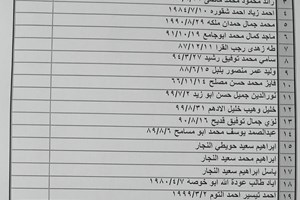 رائد محمود محمد
احمد زياد احمد شقوره ١٩٨٤/٧/١٠ ٤
محمد جمال حمدان ملكه ١٩٩٠/٨/٢٩ ٥
ماجد كمال محمد ابوجامع ٩١/١٠/١٩ ٦
طه زهدى رجب القرا ٨٧/١٢/١١ ٧
سامي محمد توفيق رشيد ٨
وليد عمر منصور بلبل ٨٨/٦/١٥ ٩
فايز محمد حسن مصلح ٦٦/١١/١٤ ١٠
نورالدين جميل حسن ابو زيد ٩٩/٧/٢ ١١
خليل وهيب خليل الادهم ٩٩/٨/٣١ ١٢
لؤي جمال توفيق قديح ٩٠/٨/١٦ ١٣
عبدالصمد يوسف محمد ابو مسامح ٨٩/٨/٦ ١٤
ابراهيم سعيد حويطي النجار ١٥
ابراهيم محمد سعيد النجار ١٦
باسل ابراهيم سعيد النجار ١٧
اياد طالب عودة الله ابو خوصه ١٩٨٠/٤/٧ ١٨
احمد تيسير احمد التوم ١٩٩٩/٣/٢ ١٩